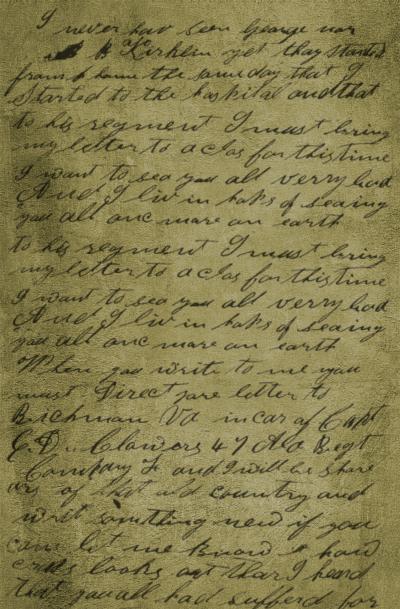 I never hav seen George nor
B Kirklin yet thay started
from home the same day that I
Started to the hospital and that
to his regment I must bring
my letter to a clos for this time
I want to sea you all verry bad
And I liv in hops of seaing
you all onc more on earth
to his regment I must bring
my letter to a clos for this time
I want to sea you all verry bad
And I liv in hops of seaing
you all onc more on earth
When you write to me you
must Direct yore letter to
Richman Va in car of Capt
G. D. Clowers 47 Ala Regt
Company F and I will be shore
of that old country and
writ somthing new if you
can let me know how
looks out thar I heard
that you all had sufferd for